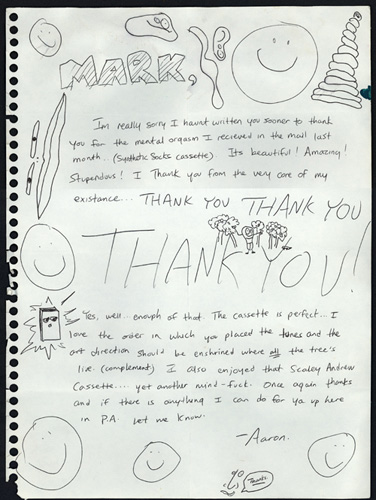 MARK,
Im really sorry I haunt written you sooner to thank
you for the mental orgasm I recieved in the mail last
month.. (Synthetic Socks cassette) Its beautiful! Amazing!
Stupendous! I Thank you from the very core of my
existance... THANK YOU THANK YOU
THANK YOU!
Yes, well... enough of that. The cassette is perfect... I
love the order in which you placed the tunes and the
art direction should be enshrined where all the tree's
live. (complement) I also enjoyed that Scaley Andrew
Cassette.... yet another mind-fuck. Once again thanks
and if there is anything I can do for ya up here
in P.A. let me know.
-Aaron.
Thanks.